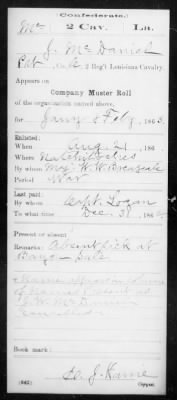 (Confederate.)
Mc 2 Cav. La.
J. McDaniel
Pvt, Co. , 2 Reg't Louisiana Cavalry.
Appears on
Company Muster Roll
of the organization named above,
for Jany & Feby, 1863.
Enlisted:
When Aug 21, 186
Where Natchitoches
By whom Maj. W. W. Breazeale
Period War
Last paid:
By whom Capt. Logan
To what time Dec. 31, 186
Present or absent
Remarks: Absent sick at
Bayou
Name appears in column
of names present as
McDaniel
Book mark:
(642) Copyist.